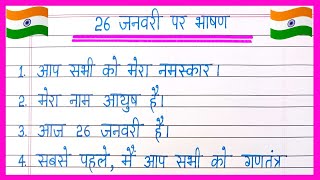 26 जनवरी पर भाषण
1. आप सभी को मेरा नमस्कार।
2. मेरा नाम आयुष है।
3. आज 26 जनवरी है।
4. सबसे पहले, मैं आप सभी को गणतंत्र